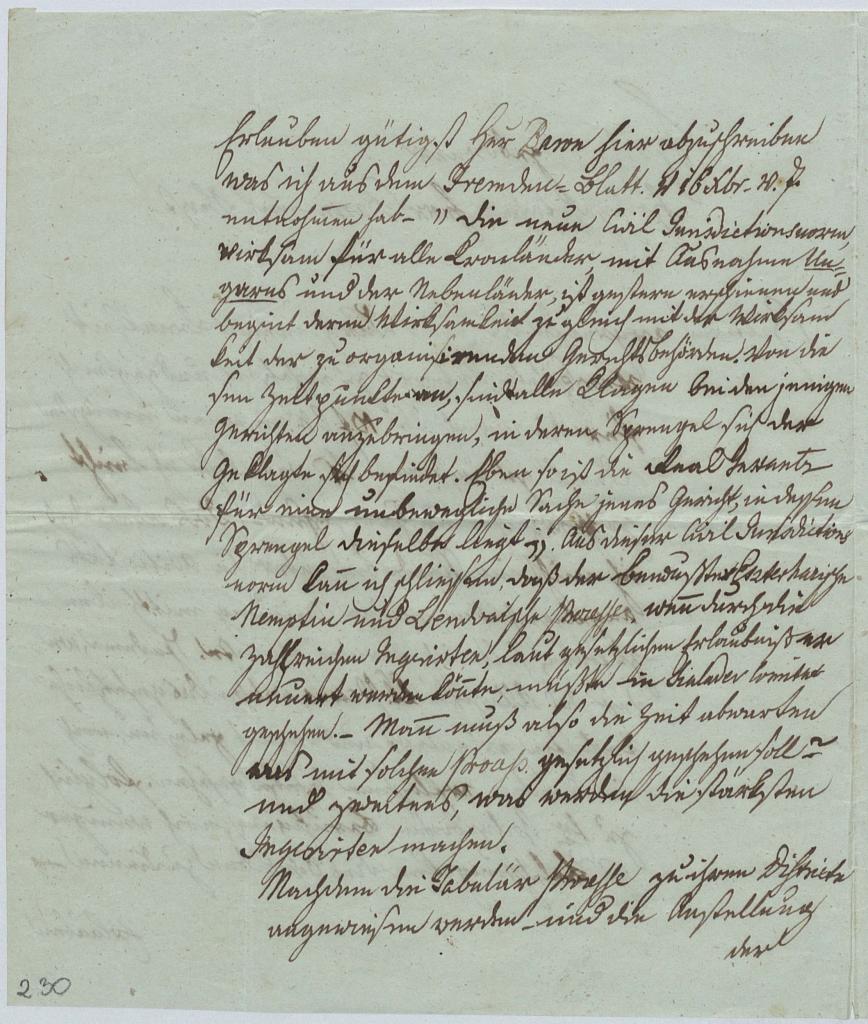 Erlauben gütigst Herr Baron hier abzuschreiben
was ich aus dem Fremden=Blatt. 16 Xbr. v. J.
entnohmen hab - „ die neue Civil Jurisdictionsnorm,
wirksam für alle Kronländer, mit Ausnahme Un=
garns und der Nebenländer, ist gestern erschienen und
begint deren Wirksamkeit zugleich mit der Wirksam
keit der zu organisirenden Gerichtsbehörden. Von die
sem Zeitpunkte an, sind alle Klagen bei den jenigen
Gerichten anzubringen, in deren Sprengel sich der
Geklagte befindet. Eben so ist die Real
für eine unbewegliche Sache jenes Gericht, in dessen
Sprengel dieselbe liegt ". Aus dieser Civil Jurisdictions
norm kann ich schliessen, daß der bewußte Eszterhazische
Nemptin und Lendvaische Prozesse, wenn durch die
zahlreichen Ingerirten, laut gesetzlichen Erlaubniß er
neuert werden könnte, müßte in Comitat
geschehen. - Mann muß also die Zeit abwarten
was mit solchen Prozeß. gesetzlich geschehen soll?
und zweitens, was werden die stärksten
Ingerirten machen.
Nachdem die Tabulär Prozesse zu ihren Districte
angewiesen werden und die Anstellung
der
230